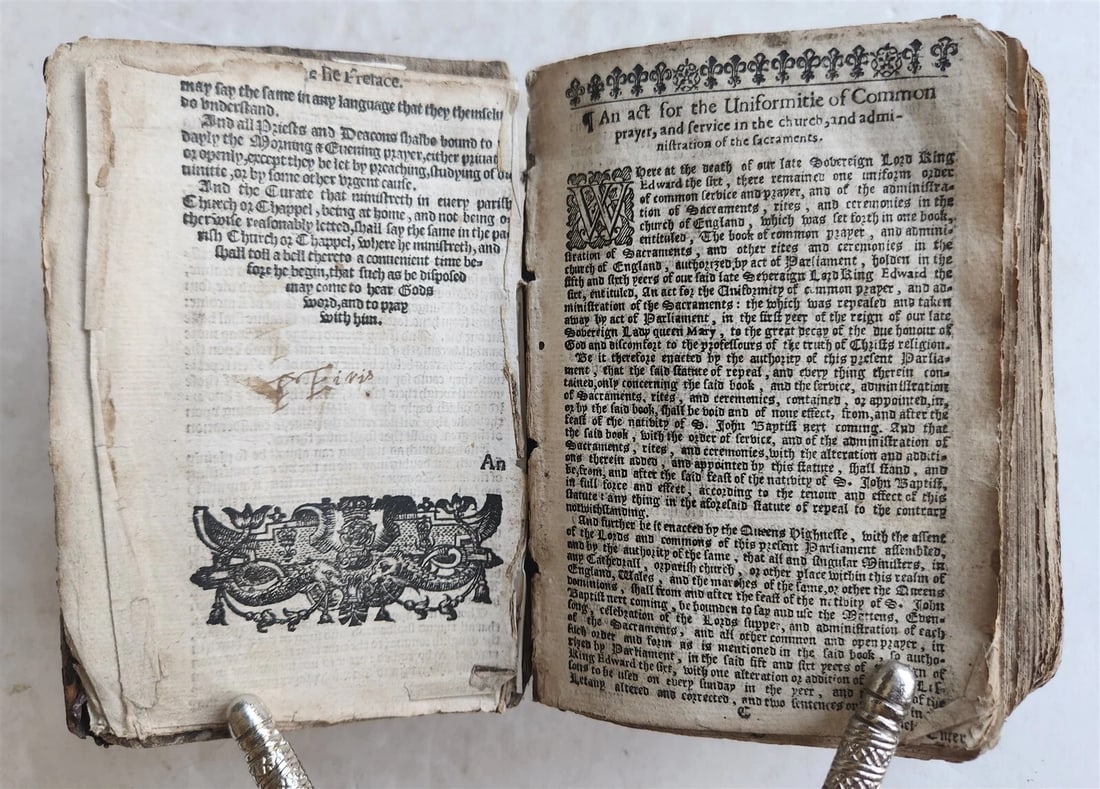 he Preface.
may say the same in any language that they themselu
do vnderstand.
And all Priests and Deacons shalbe bound to
dayly the Morning & Evening prayer, either priuat
or openly, except they be let by preaching, studying of
uinitie, or by some other vrgent cause.
And the Curate that ministreth in euery parish
Church or Chappel, being at home, and not being o
therwise reasonably letted, shall say the same in the pa
rish Church or Chappel, where he ministreth, and
shall toll a bell thereto a conuenient time be-
fore he begin, that such as be disposed
may come to hear Gods
word, and to pray
with him.
An
¶ An act for the Uniformitie of Common
prayer, and service in the church, and admi-
nistration of the sacraments.
WHere at the death of our late Sovereign Lord King
Edward the sixt, there remained one uniform order
of common service and prayer, and of the administra-
tion of Sacraments, rites, and ceremonies in the
church of England, which was set forth in one book,
entituled, The book of common prayer, and admini-
stration of Sacraments, and other rites and ceremonies in the
church of England, authorized by act of Parliament, holden in the
fifth and sixth yeers of our said late Severaign Lord King Edward the
sixt, entituled, An act for the Uniformity of common prayer, and ad-
ministration of the Sacraments: the which was repealed and taken
away by act of Parliament, in the first yeer of the reign of our late
Sovereign Lady queen Mary, to the great decay of the due honour of
God and discomfort to the professours of the truth of Christs religion.
Be it therefore enacted by the authority of this present Parlia-
ment, that the said statute of repeal, and every thing therein con-
tained, only concerning the said book, and the service, administration
of Sacraments, rites, and ceremonies, contained, or appointed, in,
or by the said book, shall be void and of none effect, from, and after the
feast of the nativity of S. John Baptist next coming. And that
the said book, with the order of service, and of the administration of
Sacraments, rites, and ceremonies, with the alteration and additi-
ons therein added, and appointed by this statute, shall stand, and
be, from, and after the said feast of the nativity of S. John Baptist,
in full force and effect, according to the tenour and effect of this
statute: any thing in the aforesaid statute of repeal to the contrary
notwithstanding.
And further be it enacted by the Queens Highnesse, with the assent
of the Lords and commons of this present Parliament assembled,
and by the authority of the same, that all and singular Ministers, in
any Cathedrall, or parish church, or other place within this realm of
England, Wales, and the marches of the same, or other the Queens
dominions, shall from and after the feast of the nativity of S. John
Baptist next coming, be bounden to say and use the Mattens, Even-
song, celebration of the Lords supper, and administration of each
of the Sacraments, and all other common and open prayer, in
such order and form as is mentioned in the said book, so autho-
rized by Parliament, in the said fift and sixt yeers of gn of
King Edward the sixt, with one alteration or addition of Les-
sons to be used on every sunday in the yeer, and of the
Letany altered and corrected, and two sentences on in
C